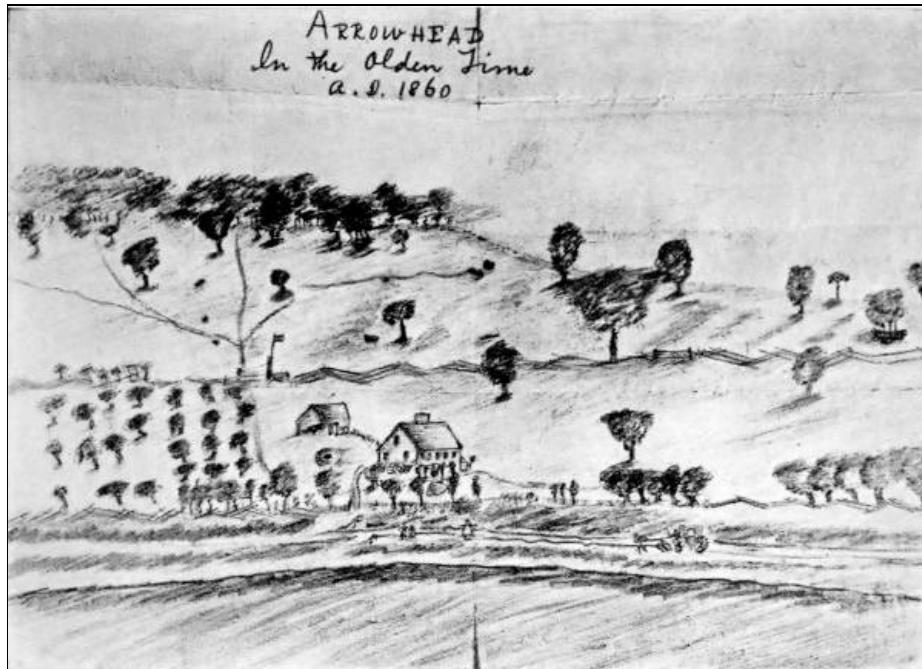 ARROWHEAD
In the Olden Time
A.D. 1860